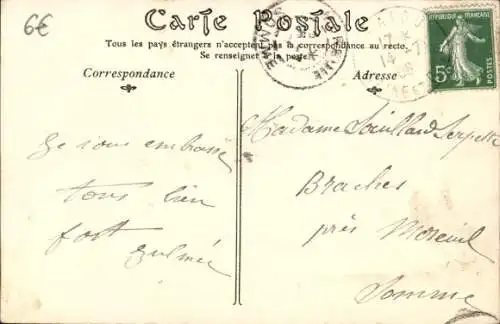 6€
Carte Postale
Tous les pays étrangers n'acceptent pas la correspondance au recto.
Se renseigner à la poste.
Correspondance
Adresse
RÉPUBLIQUE FRANÇAISE
5c
POSTES
17
14
Je vous embrasse
tous bien
fort
Zulmée
Madame Saillard Serpette
Braches
près Moreuil
Somme